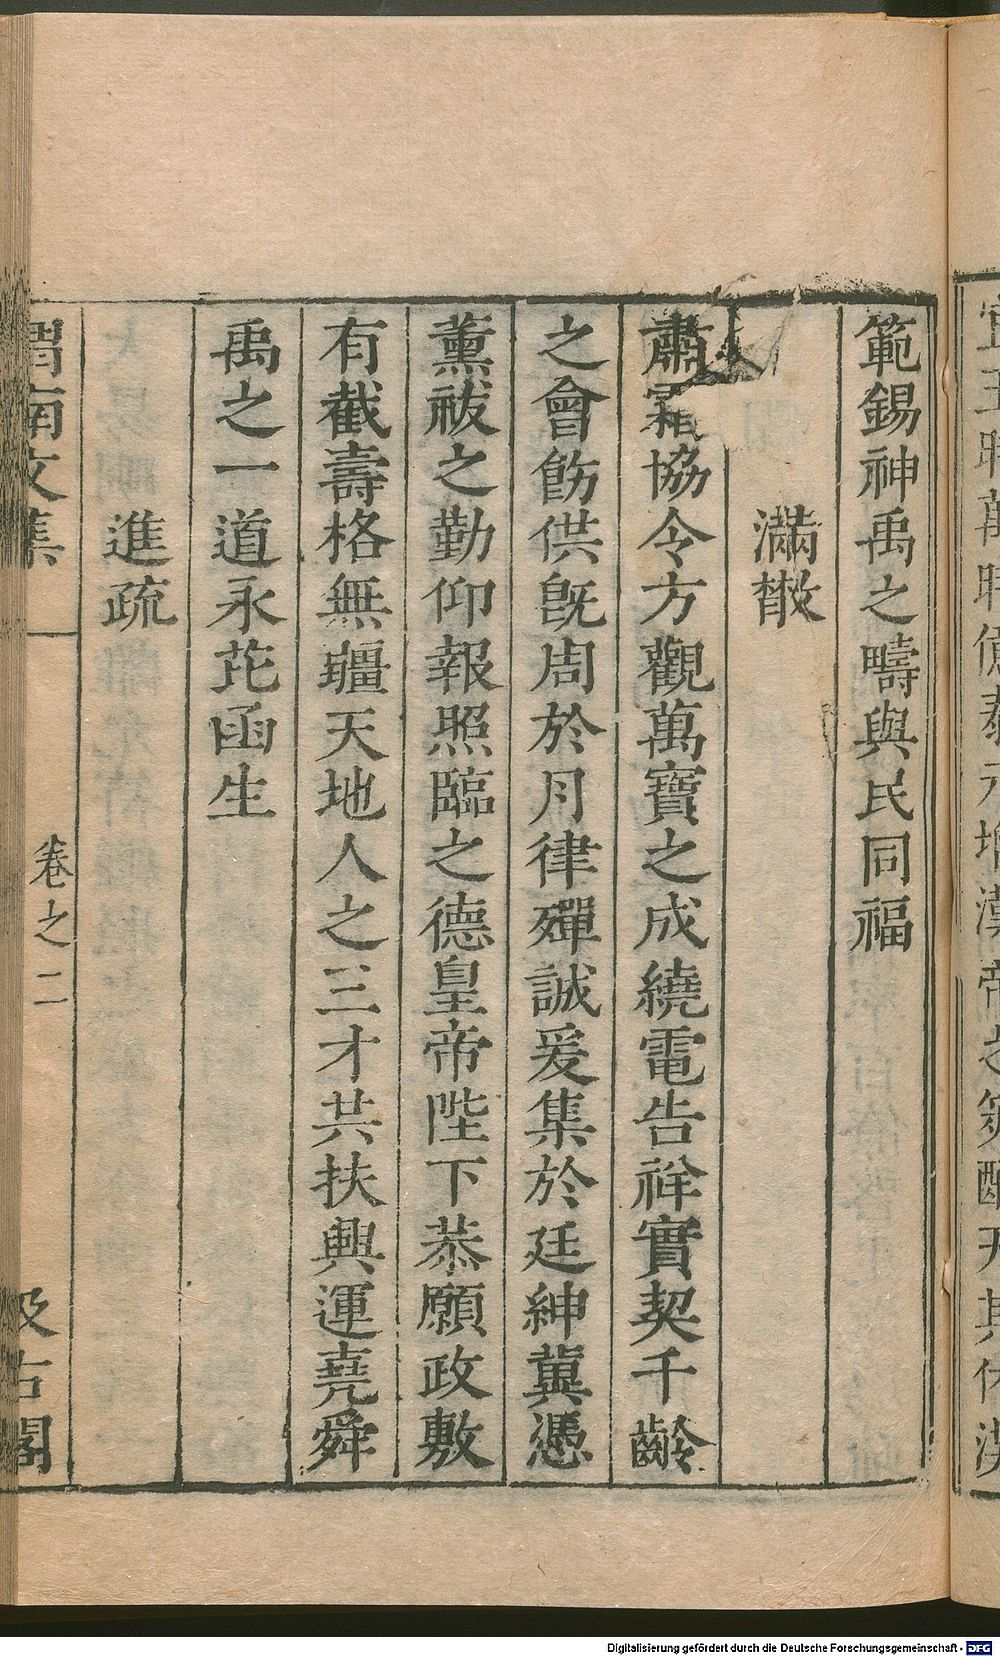 範錫神禹之疇與民同福
滿散
肅霜協令方觀萬寶之成繞電告祥實契千齡
之會飭供旣周於月律殫誠爰集於廷紳冀憑
薰祓之勤仰報照臨之德皇帝陛下恭願政敷
有截壽格無疆天地人之三才共扶興運堯舜
禹之一道永芘函生
進疏
渭南文集
卷之二
汲古閣
Digitalisierung gefördert durch die Deutsche Forschungsgemeinschaft - DFG